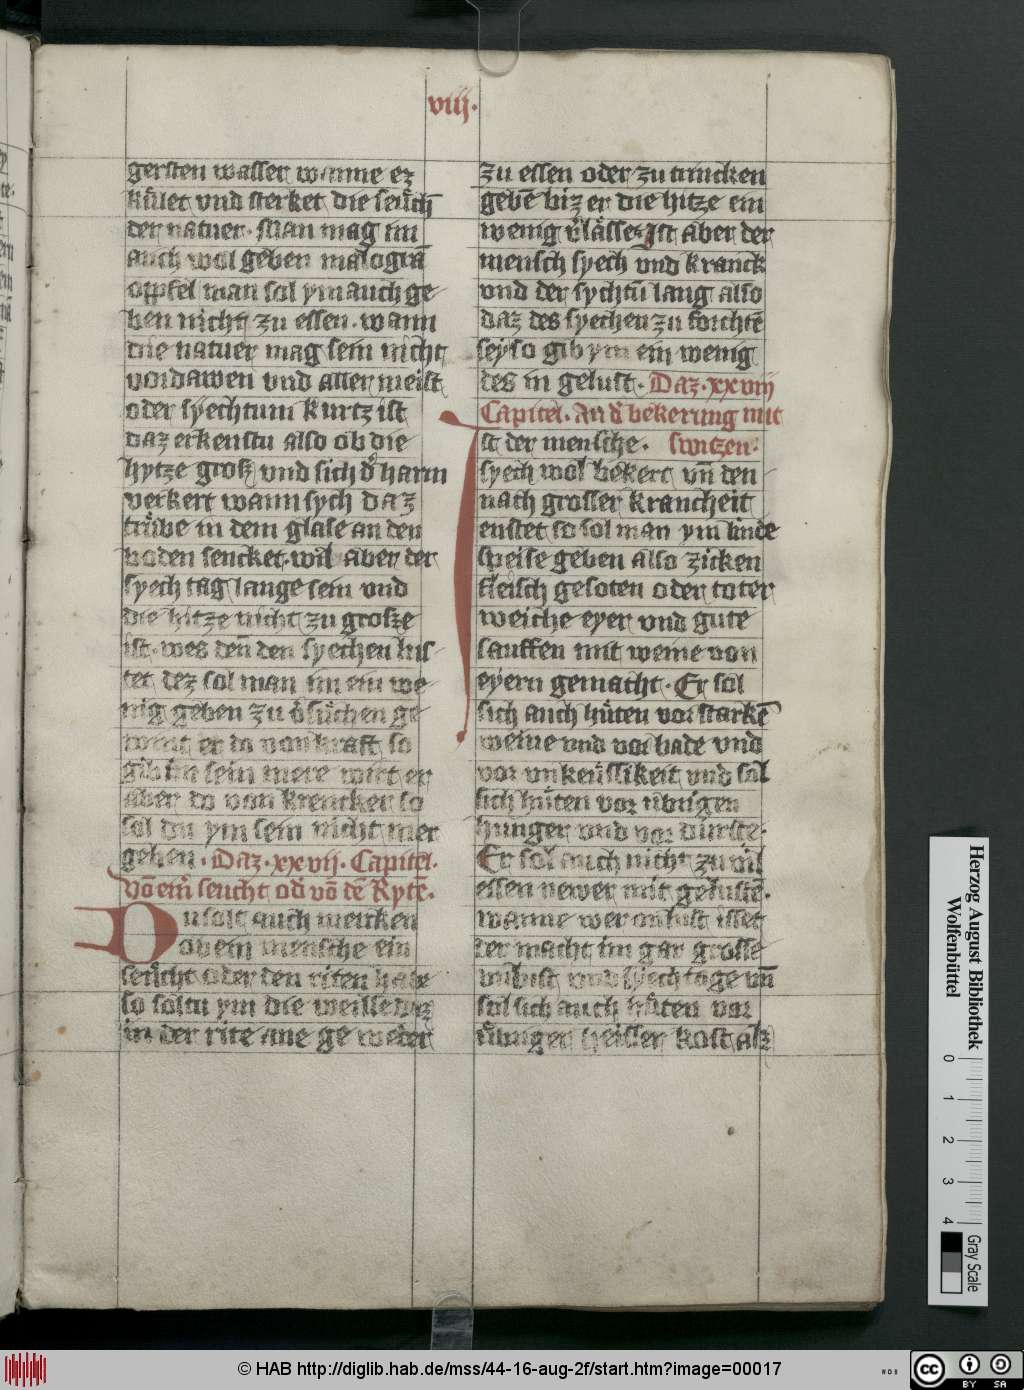 viij.
gersten wasser wanne ez
kuͤlet vnd sterket die seuͤch
der natuer. Man mag im
auch wol geben malogrā
opffel man sol ym auch ge
ben nicht zu essen. wann
die natuer mag sein nicht
vordawen vnd aller meist
oder syechtum kurtz ist
daz erkenstu also ob die
hytze groß vnd sich dͤ harm
verkert wann sych daz
truͤbe in dem glase an den
boden sencket. wil aber der
syech tag lange sein vnd
die hitze nicht zu große
ist. wes den̄ den syechen lus
tet dez sol man im ein we
nig geben zu vͤsuͤchen ge
wint er do von kraft so
gib im sein mere wirt er
aber do von krencker so
sol du ym sein nicht mer
geben. Daz. xxvij. Capitel.
vō eim̄ seucht odͤ vō dē Rytē.
Du solt auch mercken
ob ein mensche ein
seuͤcht oder den riten habe
so soltu ym die weille daz
in der rite ane ge weder
zu essen oder zu trincken
gebē biz er die hitze ein
wenig vͤlaͤsse. Ist aber der
mensch syech vnd kranck
vnd der sychtū lang also
daz des syechen zu forchtē
sey so gib ym ein wenig
des in gelust. Daz. xxviij
Capitel. An dͤ bekerung mit
Ist der mensche. switzen.
syech wol bekert vn̄ den
nach grosser krancheit
enstet so sol man ym linde
speise geben also zicken
fleisch gesoten oder toter
weiche eyer vnd gute
sauffen mit weine von
eyern gemacht. Er sol
sich auch huͤten vor starkē
weine vnd vor bade vnd
vor vnkeuͤssikeit vnd sol
sich huͤten vor uͤbrigen
hunger vnd vor durste.
Er sol auch nicht zu vil
essen newer mit gelustē.
wanne wer on lust isset
der macht im gar grosse
vnlust vnd syechtage vn̄
sol sich auch huͤten vor
uͤbriger heisser kost alz
Herzog August Bibliothek
Wolfenbüttel
0 1 2 3 4
Gray Scale
© HAB http://diglib.hab.de/mss/44-16-aug-2f/start.htm?image=00017
cc BY SA